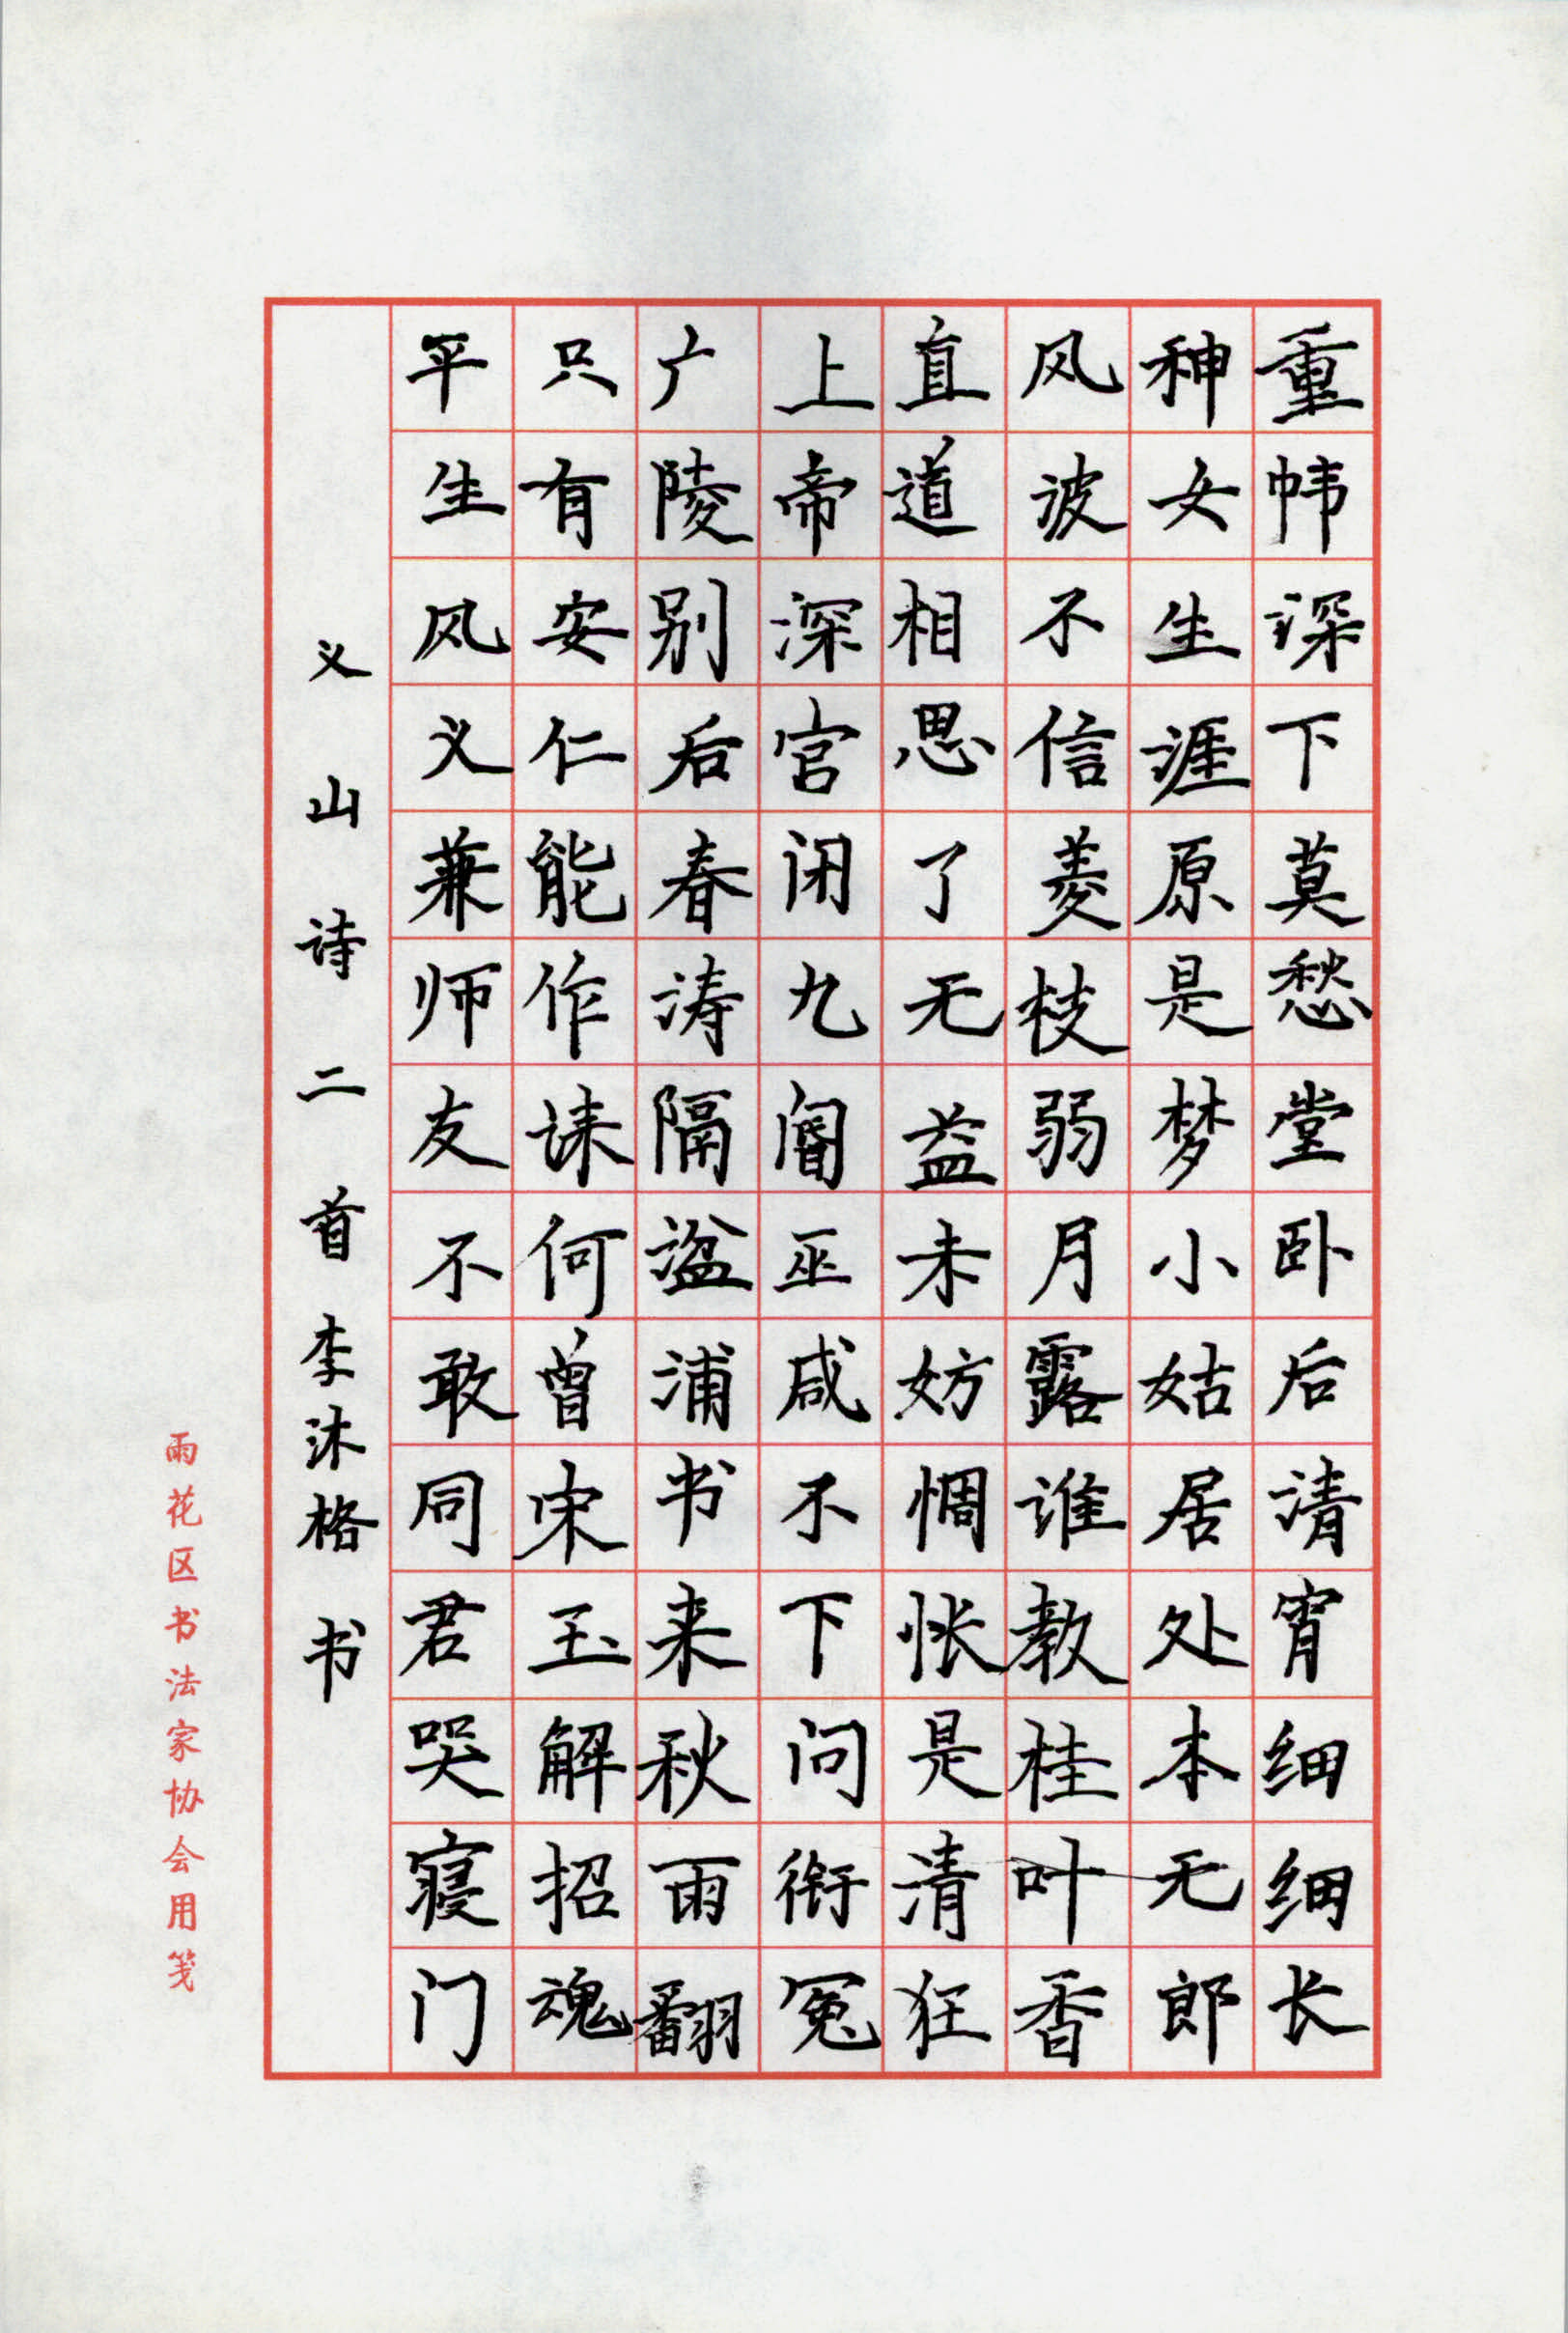 重帏深下莫愁堂卧后清宵细细长
神女生涯原是梦小姑居处本无郎
风波不信菱枝弱月露谁教桂叶香
直道相思了无益未妨惆怅是清狂
上帝深宫闭九阍巫咸不下问衔冤
广陵别后春涛隔湓浦书来秋雨翻
只有安仁能作诔何曾宋玉解招魂
平生风义兼师友不敢同君哭寝门
义山诗二首李沐格书
雨花区书法家协会用笺